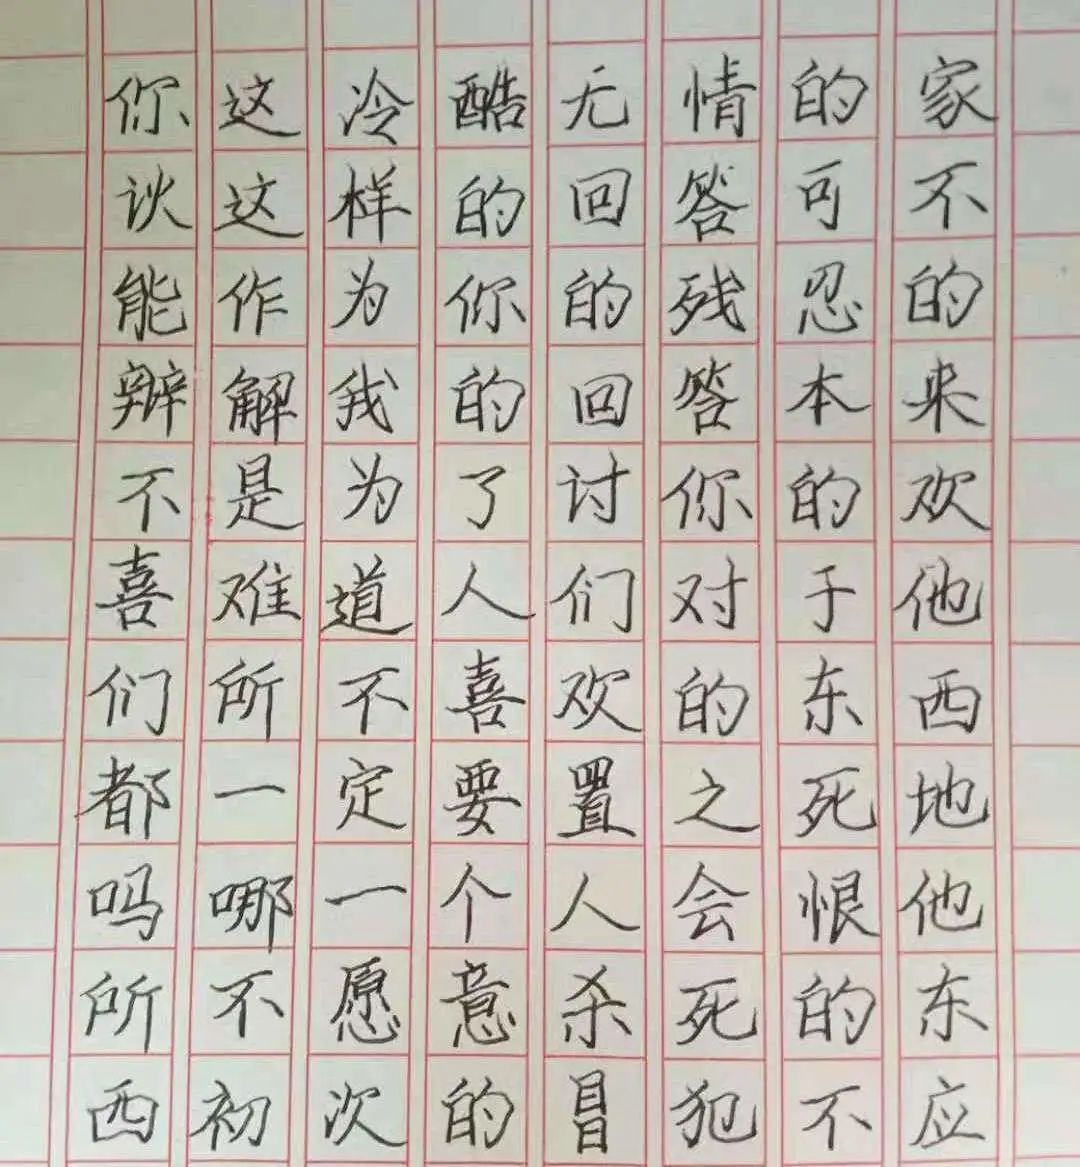 你这冷酷无情的家
谈这样的回答可不
能作为你的残忍的
辩解我的回答本来
不是为了讨你的欢
喜难道人们对于他
们所不喜欢的东西
都一定要置之死地
吗哪一个人会恨他
所不愿意杀死的东
西初次的冒犯不应